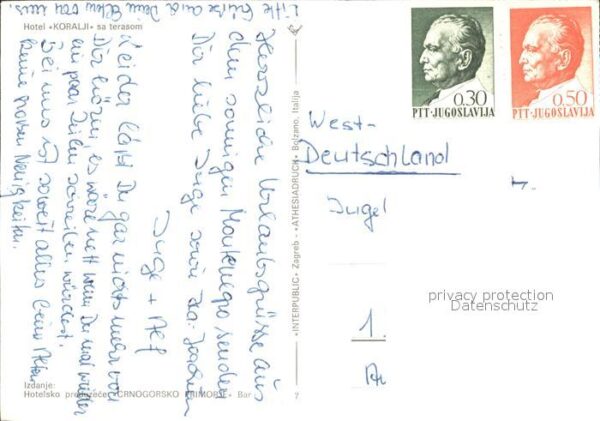 Hotel «KORALJI» sa terasom
Herzliche Urlaubsgrüße aus
dem sonnigen Montenegro senden
Dir liebe Inge
Inge + Alf
Leider läßt Du gar nichts mehr von
Dir hören, es wäre nett wenn Du mal wieder
ein paar Zeilen schreiben würdest.
Bei uns ist soweit alles beim Alten
keine großen Neuigkeiten.
Bitte Grüße auch Deine Eltern von uns
Izdanje:
Hotelsko preduzeće: «CRNOGORSKO PRIMORJE» Bar
7
«INTERPUBLIC» Zagreb - «ATHESIADRUCK» Bolzano, Italija
0.30
PTT·JUGOSLAVIJA
0.50
PTT·JUGOSLAVIJA
West-
Deutschland
1.
privacy protection
Datenschutz